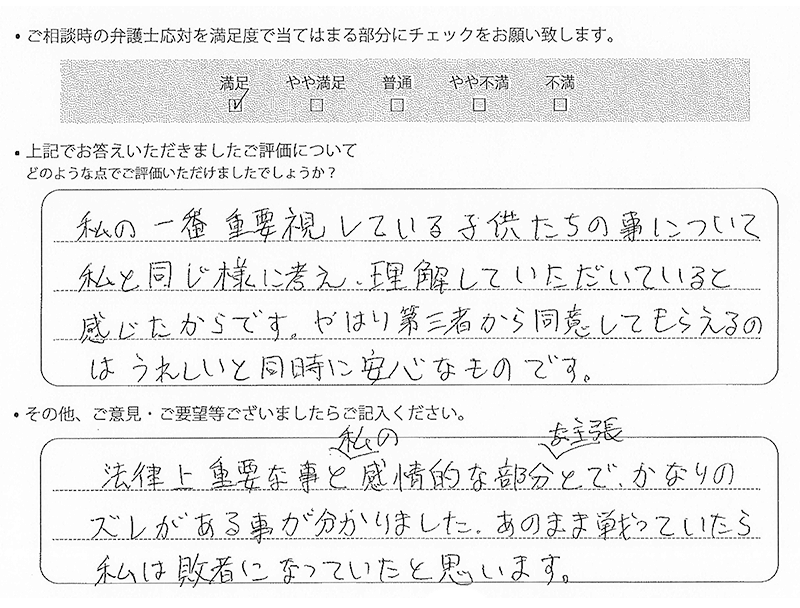 ・ご相談時の弁護士応対を満足度で当てはまる部分にチェックをお願い致します。
満足 やや満足 普通 やや不満 不満
・上記でお答えいただきましたご評価について
どのような点でご評価いただけましたでしょうか？
私の一番重要視している子供たちの事について
私と同じ様に考え、理解していただいていると
感じたからです。やはり第三者から同意してもらえるの
はうれしいと同時に安心なものです。
・その他、ご意見・ご要望等ございましたらご記入ください。
私の な主張
法律上重要な事と感情的な部分とで、かなりの
ズレがある事が分かりました。あのまま戦っていたら
私は敗者になっていたと思います。